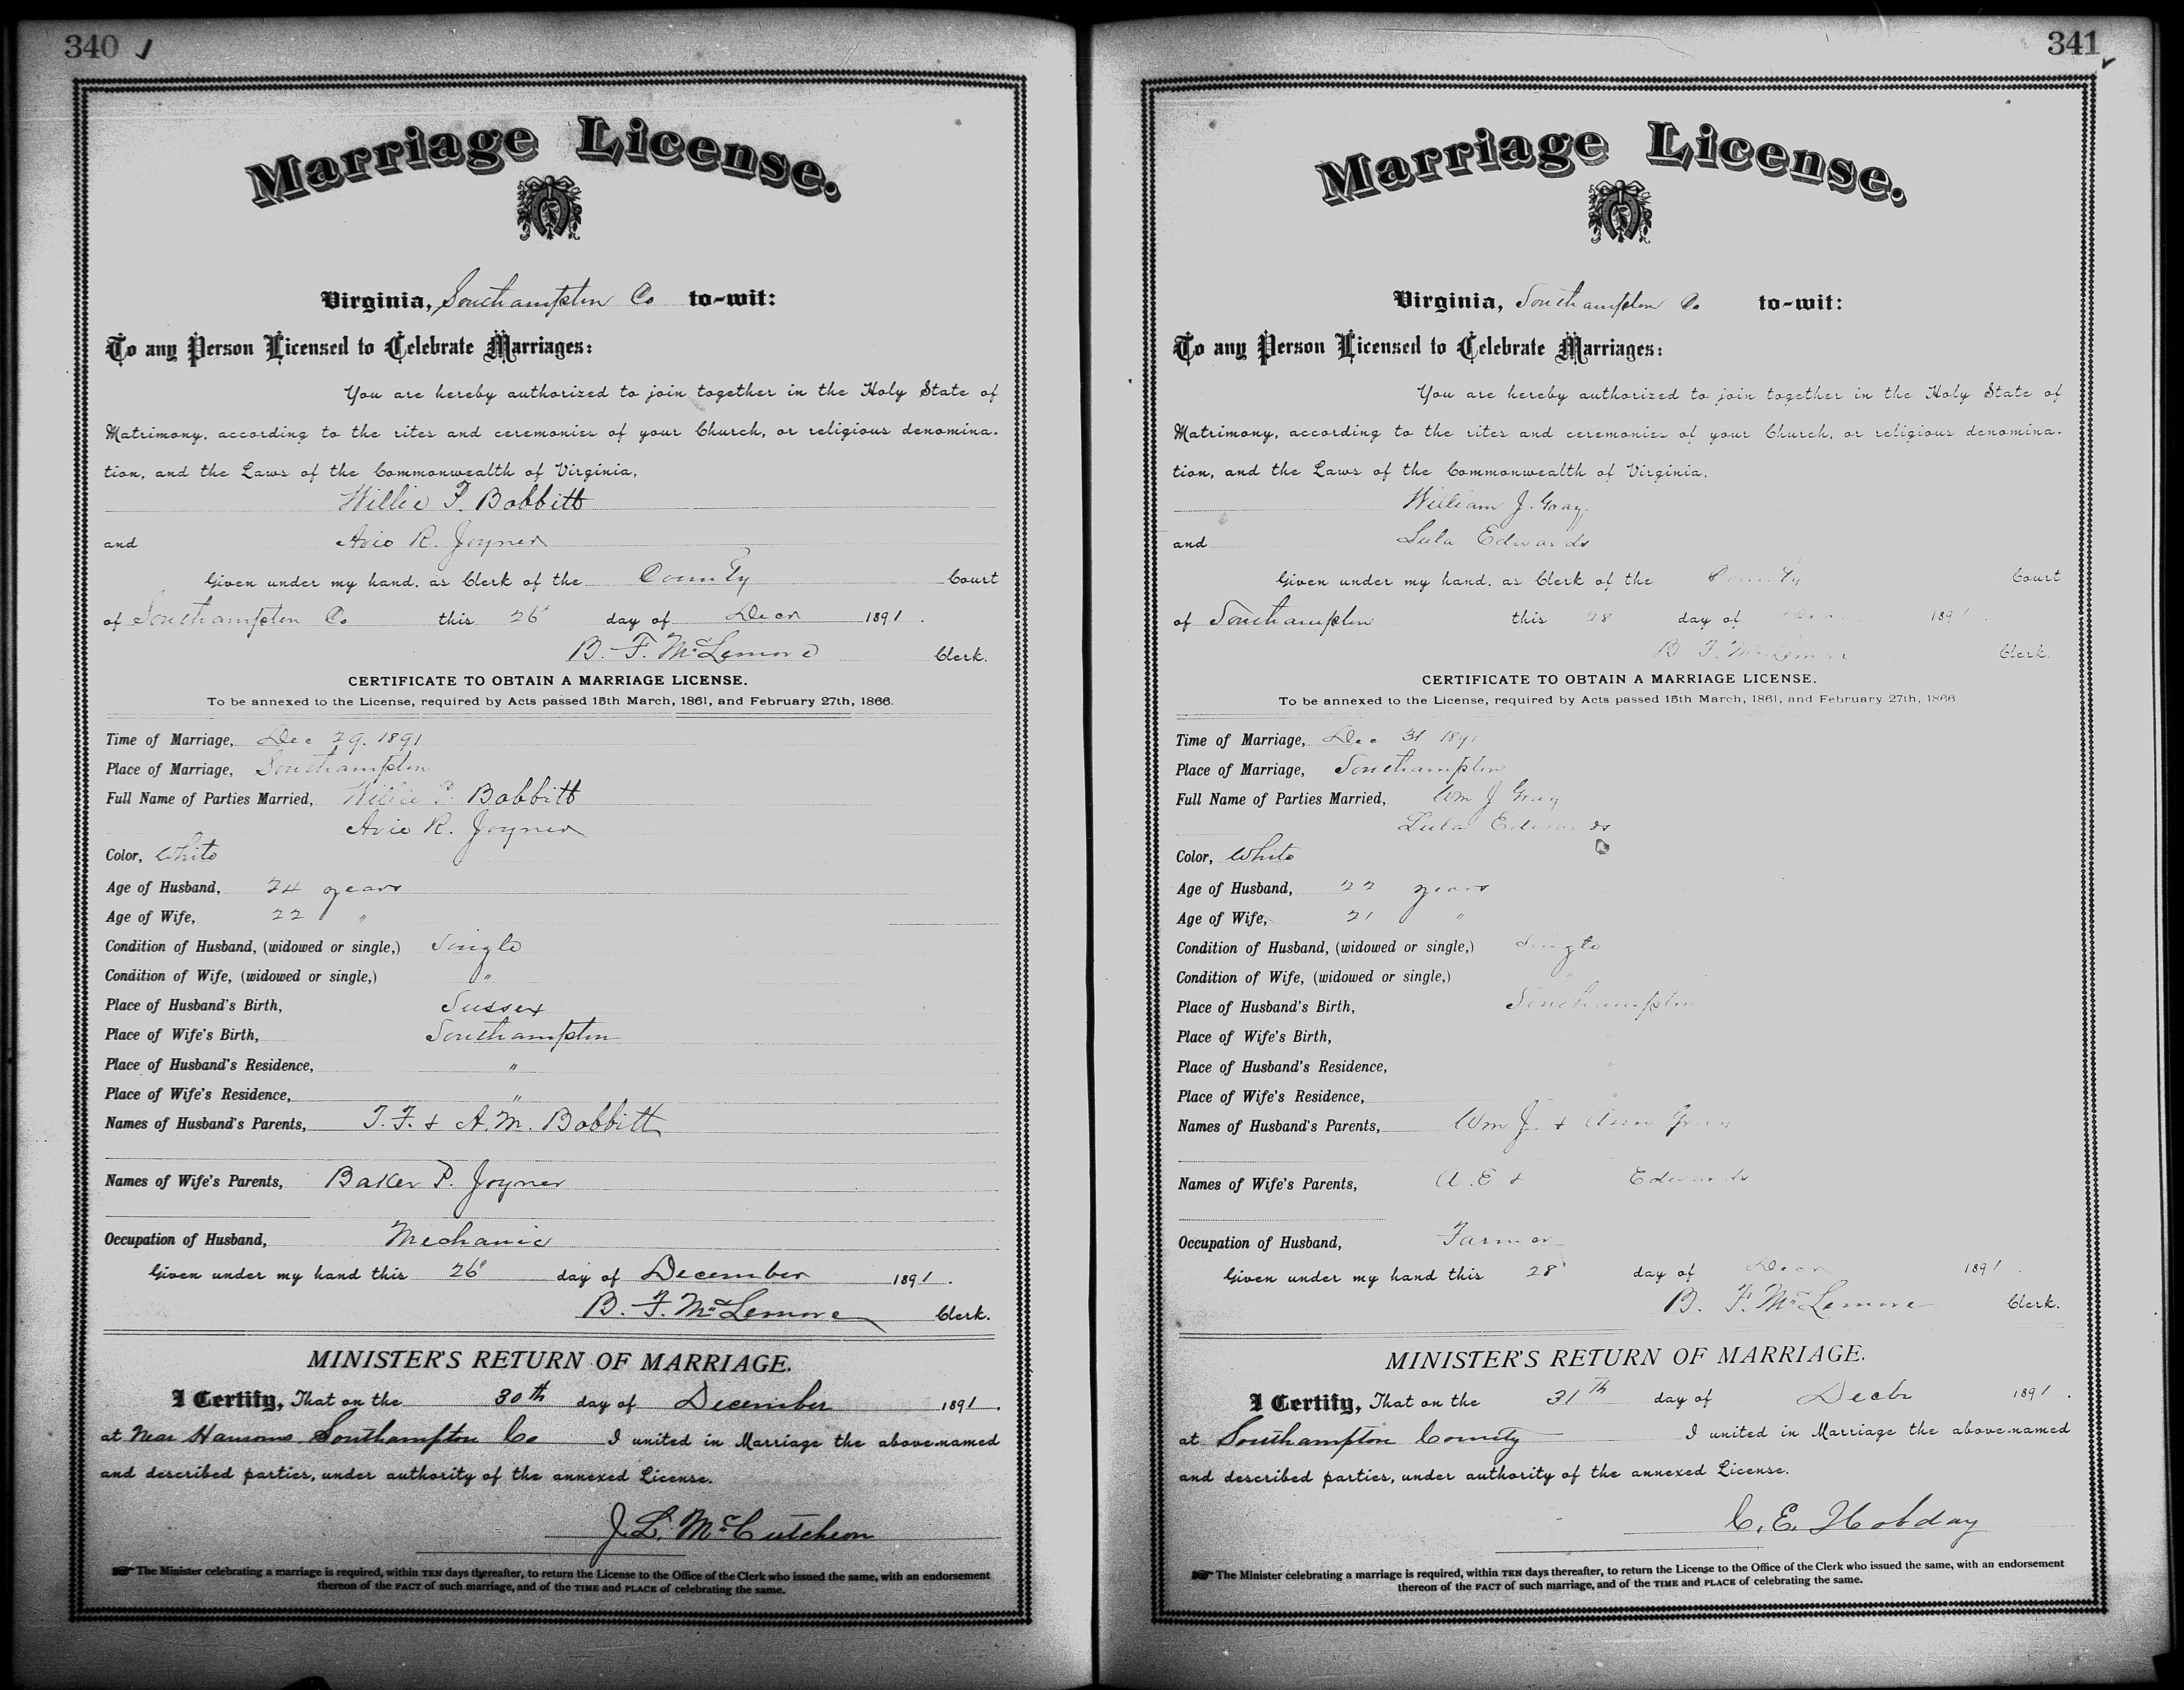 340
Marriage License.
Virginia, Southampton Co to-wit:
To any Person Licensed to Celebrate Marriages:
You are hereby authorized to join together in the Holy State of
Matrimony, according to the rites and ceremonies of your Church, or religious denomina-
tion, and the Laws of the Commonwealth of Virginia,
Willie P. Bobbitt
and Avie R. Joyner
Given under my hand, as Clerk of the County Court
of Southampton Co this 26" day of Decr 1891.
B. F. McLemore Clerk.
CERTIFICATE TO OBTAIN A MARRIAGE LICENSE.
To be annexed to the License, required by Acts passed 15th March, 1861, and February 27th, 1866.
Time of Marriage, Dec 29. 1891
Place of Marriage, Southampton
Full Name of Parties Married, Willie P. Bobbitt
Avie R. Joyner
Color, White
Age of Husband, 24 years
Age of Wife, 22 "
Condition of Husband, (widowed or single,) Single
Condition of Wife, (widowed or single,) "
Place of Husband's Birth, Sussex
Place of Wife's Birth, Southampton
Place of Husband's Residence, "
Place of Wife's Residence, "
Names of Husband's Parents, T. F. & A. M. Bobbitt
Names of Wife's Parents, Baker P. Joyner
Occupation of Husband, Mechanic
Given under my hand this 26" day of December 1891.
B. F. McLemore Clerk.
MINISTER'S RETURN OF MARRIAGE.
I Certify, That on the 30th day of December 1891.
at Near Hansoms Southampton Co I united in Marriage the above-named
and described parties, under authority of the annexed License.
J. L. McCutcheon
The Minister celebrating a marriage is required, within TEN days thereafter, to return the License to the Office of the Clerk who issued the same, with an endorsement
thereon of the FACT of such marriage, and of the TIME and PLACE of celebrating the same.
341
Marriage License.
Virginia, Southampton Co to-wit:
To any Person Licensed to Celebrate Marriages:
You are hereby authorized to join together in the Holy State of
Matrimony, according to the rites and ceremonies of your Church, or religious denomina-
tion, and the Laws of the Commonwealth of Virginia.
William J. Gray
and Lula Edwards
Given under my hand, as Clerk of the County Court
of Southampton this 28 day of Decr 1891.
B F. McLemore Clerk.
CERTIFICATE TO OBTAIN A MARRIAGE LICENSE.
To be annexed to the License, required by Acts passed 15th March, 1861, and February 27th, 1866.
Time of Marriage, Dec 31 1891
Place of Marriage, Southampton
Full Name of Parties Married, Wm J Gray
Lula Edwards
Color, White
Age of Husband, 22 years
Age of Wife, 21 "
Condition of Husband, (widowed or single,) Single
Condition of Wife, (widowed or single,) "
Place of Husband's Birth, Southampton
Place of Wife's Birth, "
Place of Husband's Residence, "
Place of Wife's Residence,
Names of Husband's Parents, Wm J. & Ann Gray
Names of Wife's Parents, A. E & Edwards
Occupation of Husband, Farmer
Given under my hand this 28" day of Decr 1891.
B. F. McLemore Clerk.
MINISTER'S RETURN OF MARRIAGE.
I Certify, That on the 31th day of Decbr 1891.
at Southampton County I united in Marriage the above-named
and described parties, under authority of the annexed License.
C. E. Hobday
The Minister celebrating a marriage is required, within TEN days thereafter, to return the License to the Office of the Clerk who issued the same, with an endorsement
thereon of the FACT of such marriage, and of the TIME and PLACE of celebrating the same.